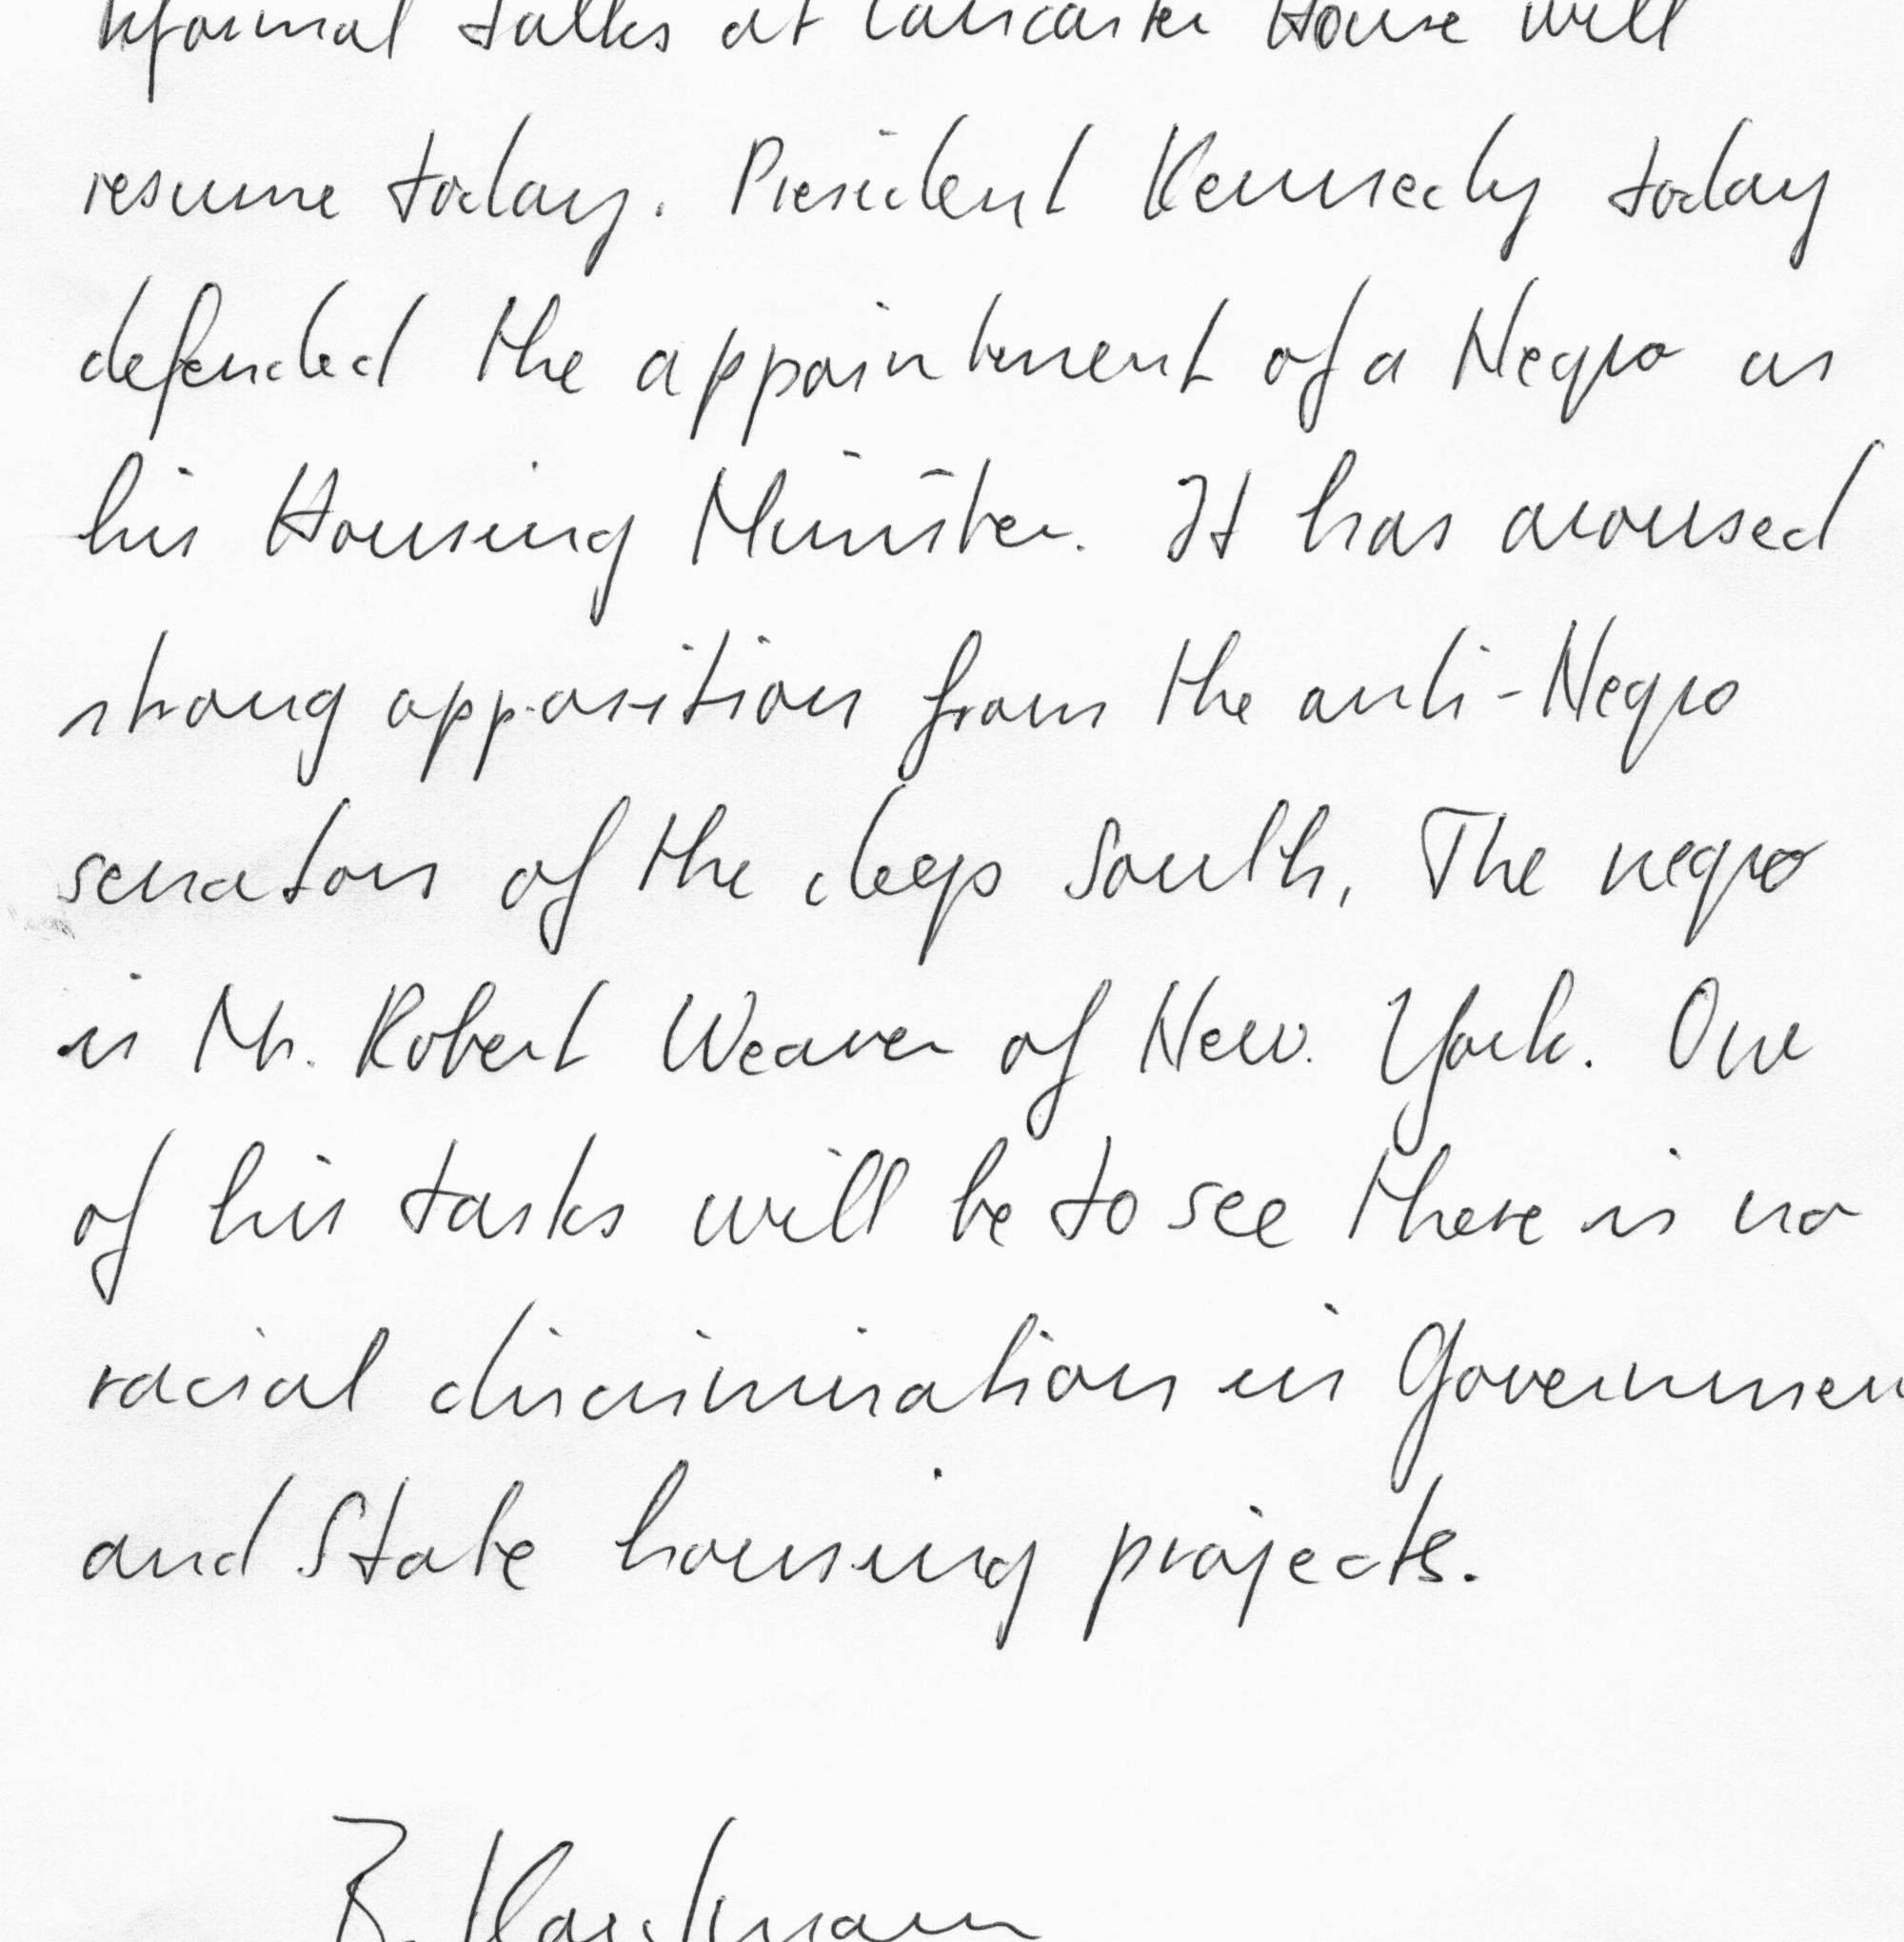 Informal talks at Lancaster House will
resume today. President Kennedy today
defended the appointment of a Negro as
his Housing Minister. It has aroused
strong opposition from the anti-Negro
senators of the deep South, The negro
is Mr. Robert Weaver of New. York. One
of his tasks will be to see there is no
racial discrimination in Governmen
and State housing projects.